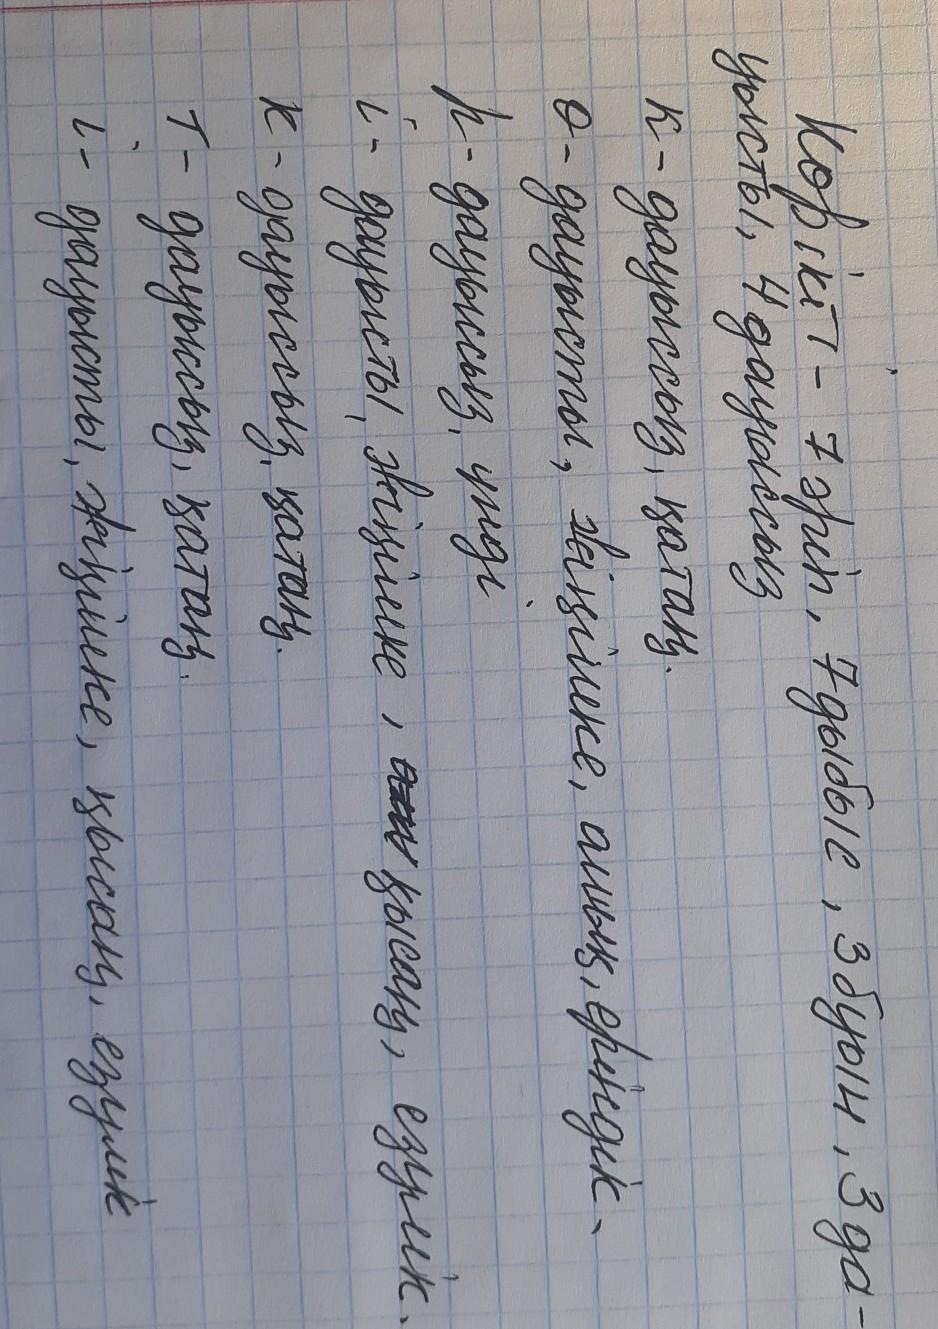 Көрікті - 7 әріп, 7 дыбыс, 3 буын, 3 да-
уысты, 4 дауыссыз
к - дауыссыз, қатаң.
ө - дауысты, жіңішке, ашық, еріндік.
р - дауыссыз, үнді
і - дауысты, жіңішке, қысаң, езулік.
к - дауыссыз, қатаң.
т - дауыссыз, қатаң.
і - дауысты, жіңішке, қысаң, езулік